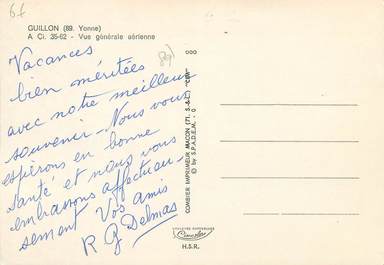 67
GUILLON (89. Yonne)
A Ci. 35-62 - Vue générale aérienne
89)
Vacances
bien méritées
avec notre meilleur
souvenir - Nous vous
espérons en bonne
santé et nous vous
embrassons affectueu-
sement Vos amis
R G Delmas
COMBIER IMPRIMEUR MACON (71. S.-&-L.) "CIM"
© by S.P.A.D.E.M.
H.S.R.